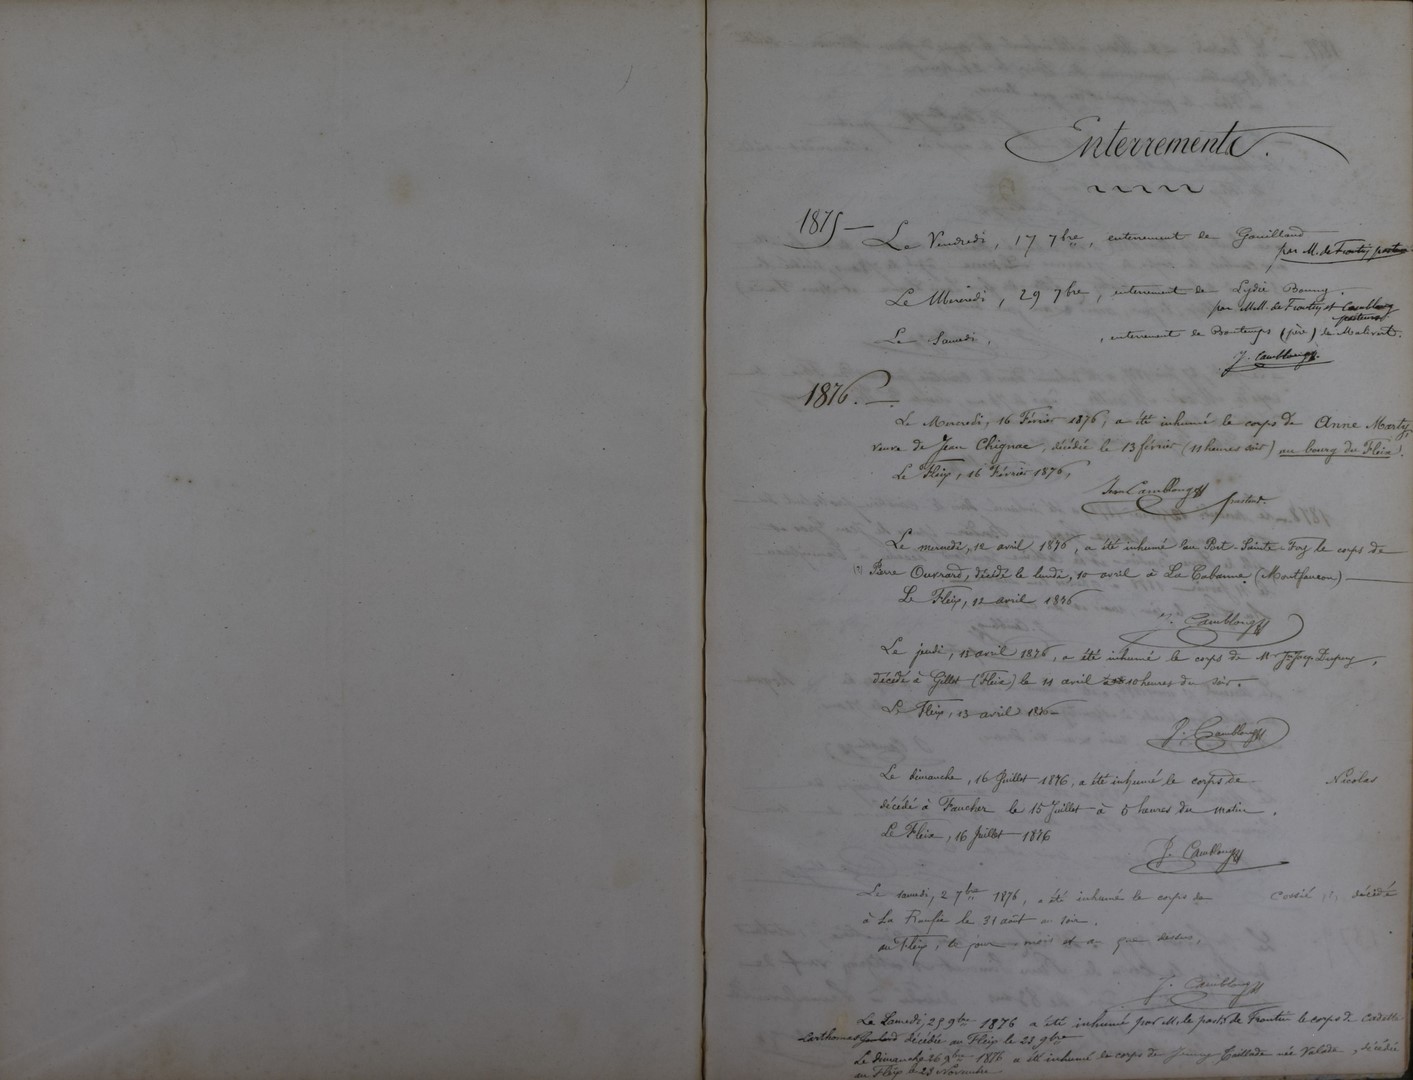 Enterrements.
1875 — Le Vendredi, 17 7bre, enterrement de Gouilland
par M. de Frontin pasteur
Le Mercredi, 29 7bre, enterrement de Lydie Bonny.
par MM. de Frontin et Camblong
pasteurs.
Le Samedi, , enterrement de Bontemps (père) de Malivert.
J. Camblong
1876. —
Le Mercredi, 16 Février 1876, a été inhumé le corps de Anne Marty,
veuve de Jean Chignac, décédée le 13 février (11 heures soir) au bourg du Fleix.
Le Fleix, 16 Février 1876,
Jean Camblong pasteur.
Le mercredi, 12 avril 1876, a été inhumé au Port-Sainte-Foy le corps de
Pierre Ouvrard, décédé le lundi, 10 avril à La Cabanne (Montfaucon) —
Le Fleix, 12 avril 1876
J. Camblong
Le jeudi, 13 avril 1876, a été inhumé le corps de Mr Dupuy,
décédé à Gillet (Fleix) le 11 avril à 10 heures du soir.
Le Fleix, 13 avril 1876 —
J. Camblong
Le dimanche, 16 Juillet 1876, a été inhumé le corps de Nicolas
décédé à Faucher le 15 Juillet à 5 heures du matin.
Le Fleix, 16 Juillet 1876
J. Camblong
Le samedi, 2 7bre 1876, a été inhumé le corps de décédé
à La le 31 août au soir.
au Fleix, le jour, mois et an que dessus.
J. Camblong
Le Samedi, 25 9bre 1876 a été inhumé par M. le past. de Frontin le corps de
décédée au Fleix le 23 9bre
Le dimanche 26 9bre 1876 a été inhumé le corps de Jenny née Valade, décédée
au Fleix le 23 Novembre